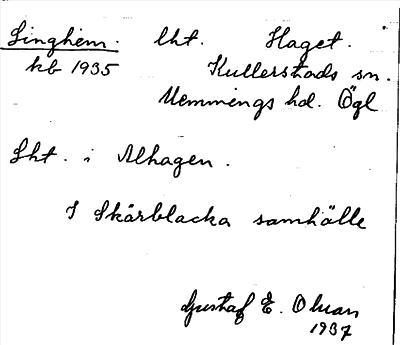 Linghem. lht. Haget.
kb 1935 Kullerstads sn.
Memmings hd. Ögl
Lht. i Alhagen.
I Skärblacka samhälle
Gustaf E. Olsson
1937